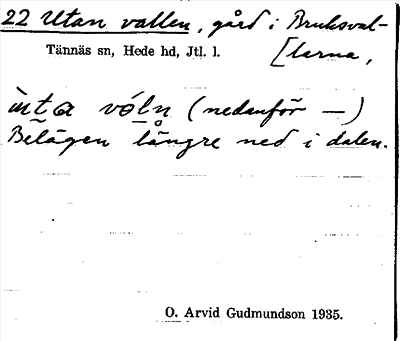 22 Utan vallen, gård i Bruksval-
[larna,
Tännäs sn, Hede hd, Jtl. l.
ùta vóln (nedanför —)
Belägen längre ned i dalen.
O. Arvid Gudmundson 1935.